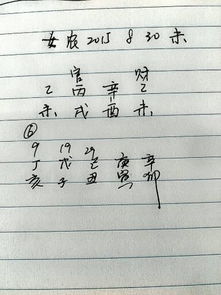 女辰 2015 8 30 未
官 财
乙 丙 辛 乙
未 戌 酉 未
⑥
9 19 29
丁 戊 己 庚 辛
亥 子 丑 寅 卯